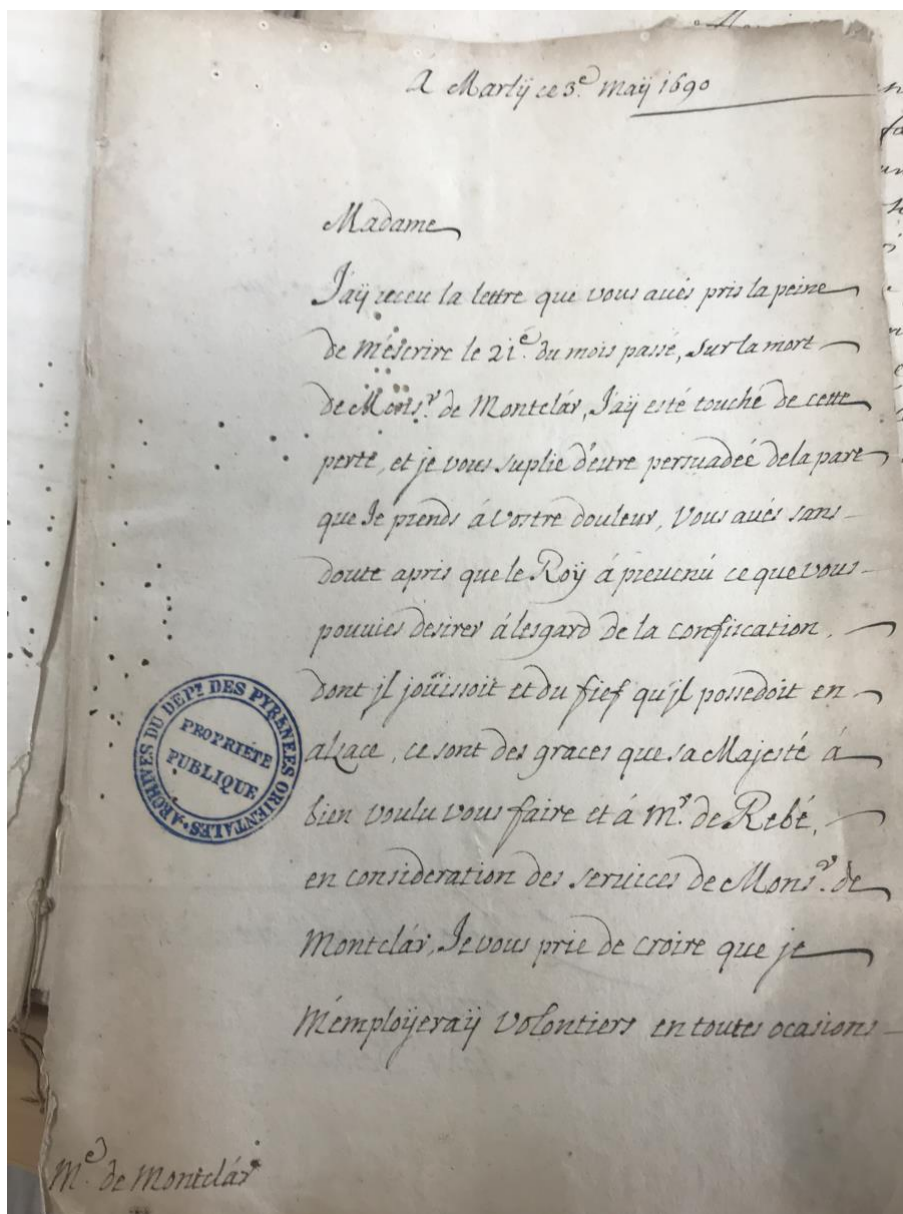 A Marlÿ ce 3.e maÿ 1690
Madame
J'aÿ receu la lettre que vous aués pris la peine
de m'éscrire le 21.e du mois passé, sur la mort
de Mons.r de Montclár, J'aÿ esté touché de cette
perte, et je vous suplie d'estre persuadée dela part
que Je prends á vostre douleur, Vous aués sans
doute apris que le Roÿ á preuenú ce que vous
pouuiés desirer álesgard de la confiscation,
dont jl joüissoit et du fief qu'jl possedoit en
alsace, ce sont des graces que sa Majesté á
bien voulu vous faire et á M.r de Rebé,
en consideration des seruices de Mons.r de
Montclár, Je vous prie de croire que je
m'emploÿeraÿ volontiers en toutes ocasions
M.e de Montclár
ARCHIVES DU DEPT DES PYRENEES ORIENTALES
PROPRIÉTÉ
PUBLIQUE